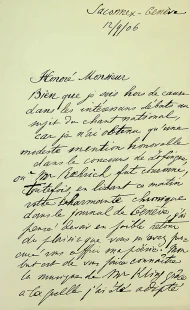 Saconnex-Genève
12/9/06
Honoré Monsieur
Bien que je sois hors de cause
dans les intéressants débats au
sujet du chant national,
car je n'ai obtenu qu'une
modeste mention honorable
dans le concours de
où Mr fait chanme,
toutefois, en lisant ce matin
votre charmante chronique
dans le Journal de Genève, j'ai
pensé devoir en faible retour
du plaisir que vous m'avez pro
curé vous offrir ma poésie. Mon
but est de vous faire connaître
la musique de Mr Kling grâce
à laquelle j'ai été adopté